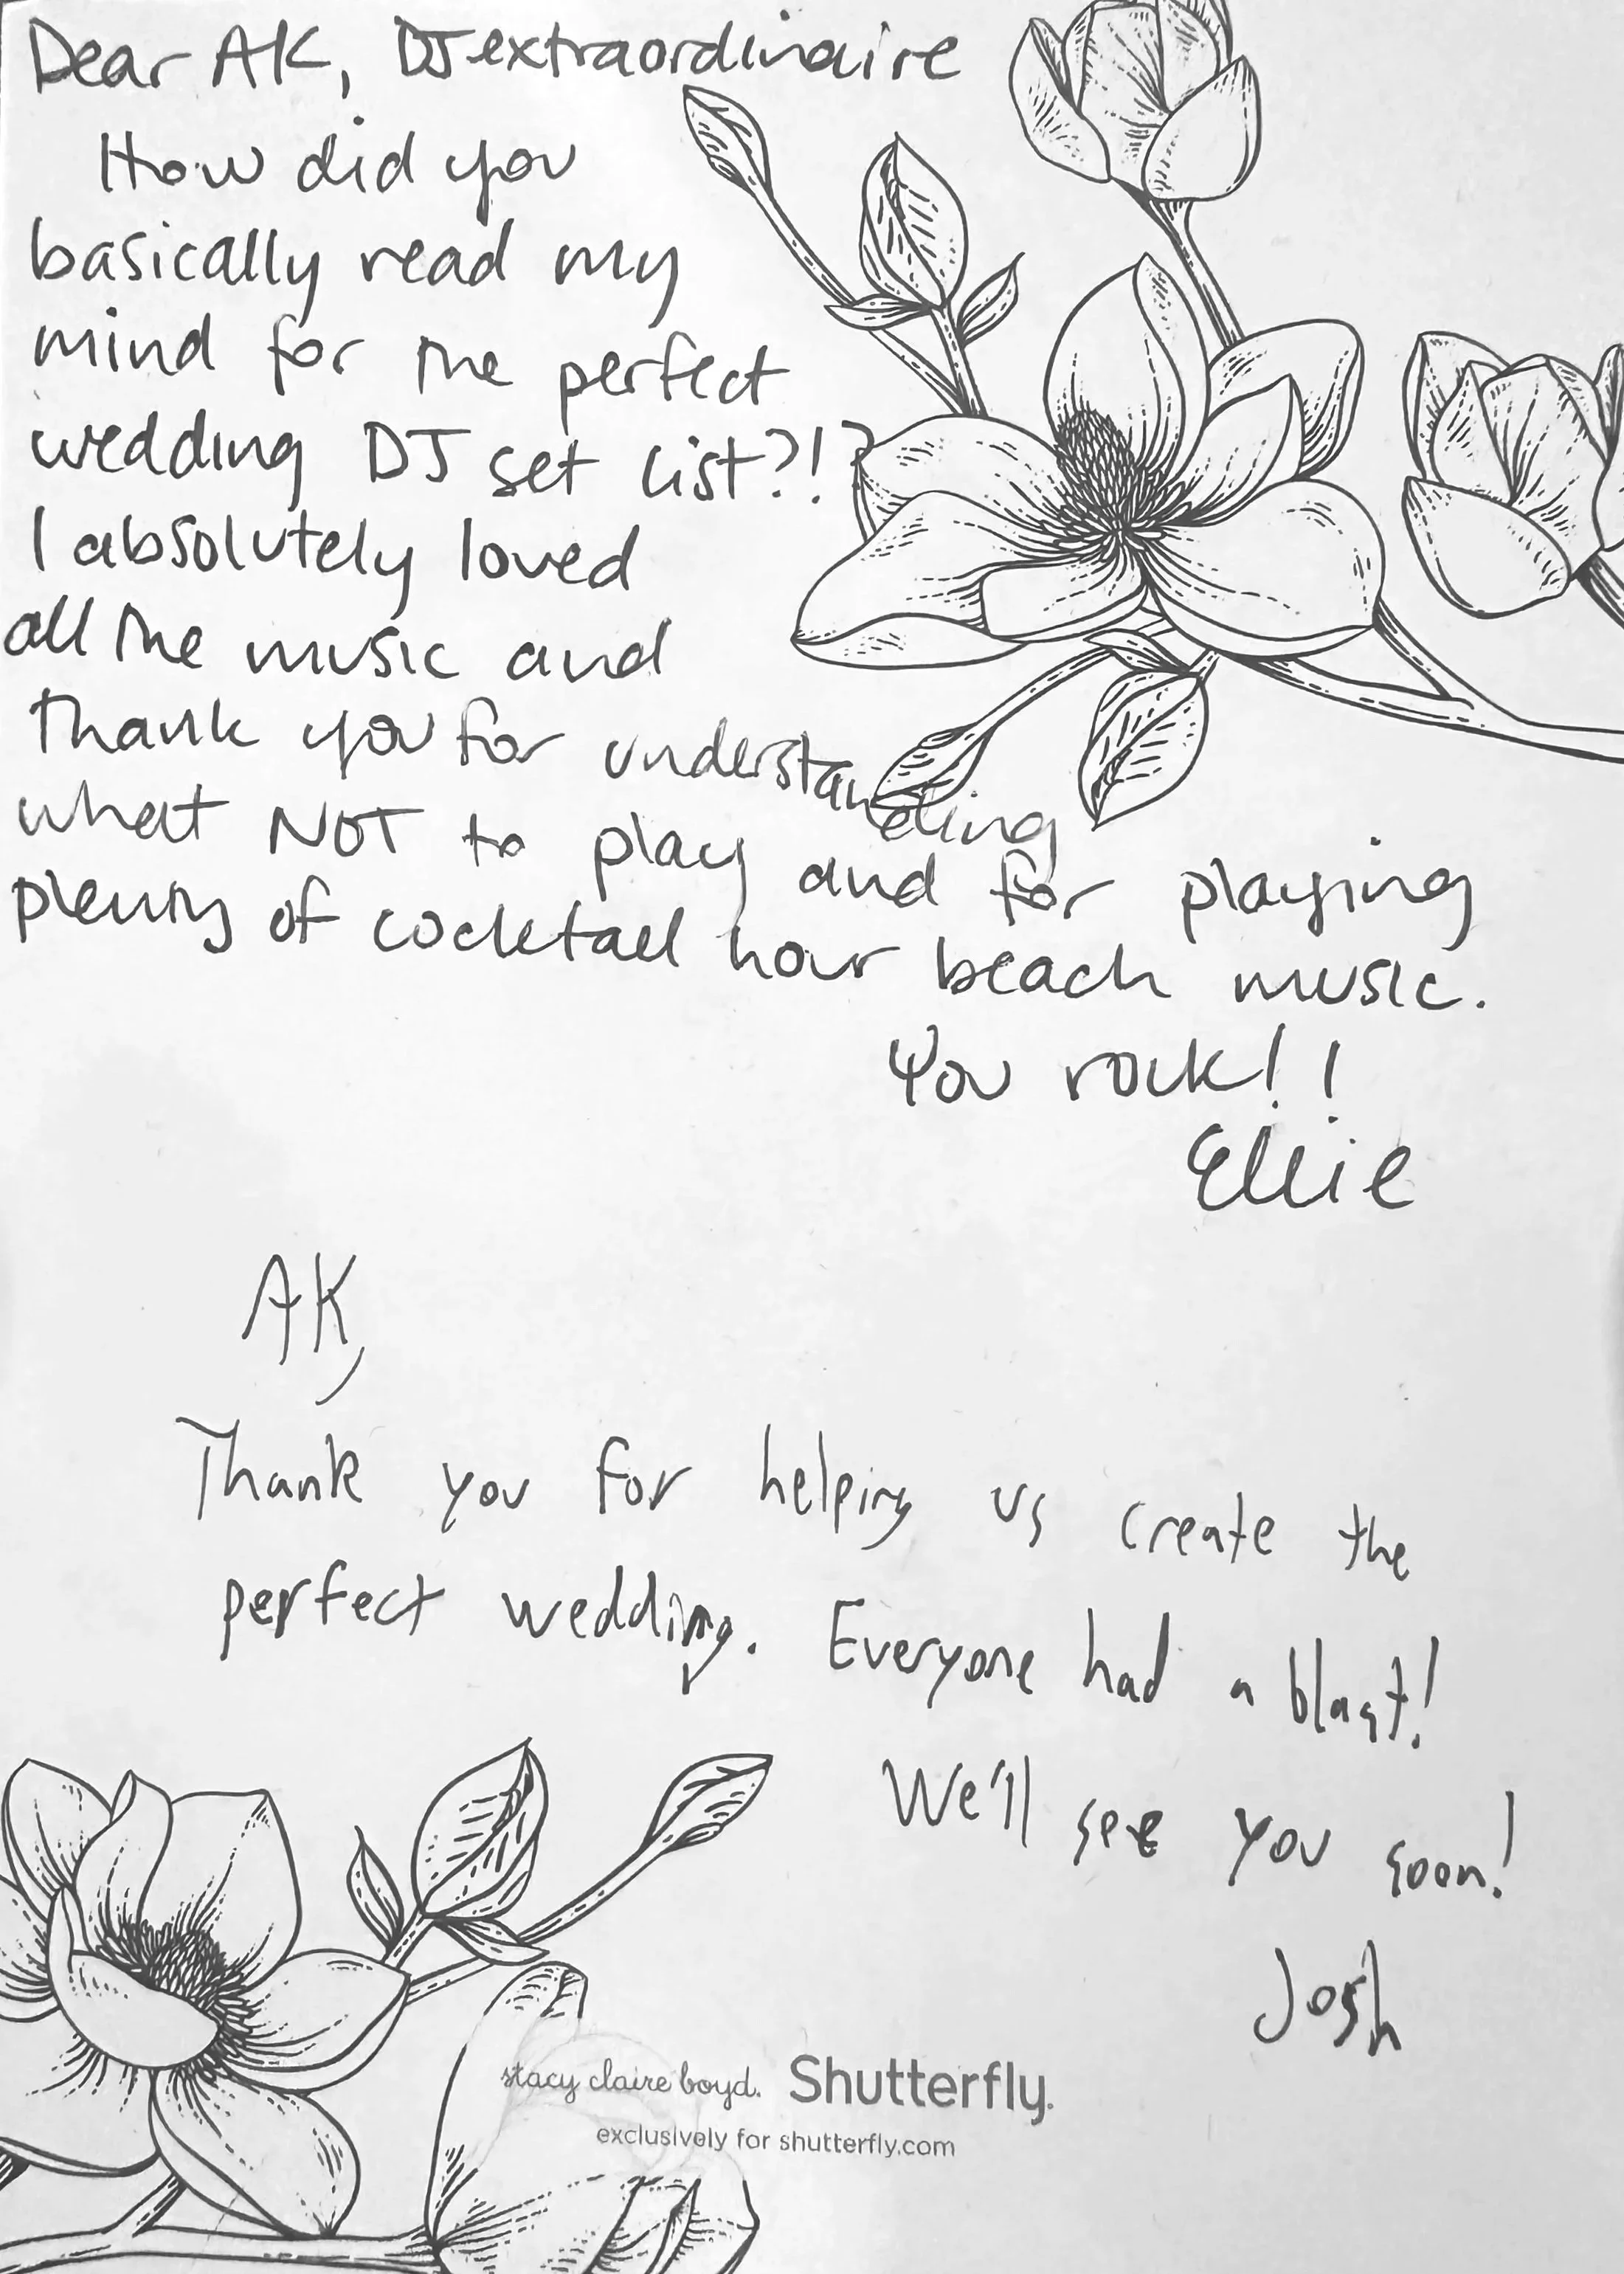 Dear AK, DJ extraordinaire
How did you
basically read my
mind for the perfect
wedding DJ set list?!?
I absolutely loved
all the music and
thank you for understanding
what NOT to play and for playing
plenty of cocktail hour beach music.
You rock!!
Ellie
AK,
Thank you for helping us create the
perfect wedding. Everyone had a blast!
We'll see you soon!
Josh
stacy claire boyd. Shutterfly.
exclusively for shutterfly.com